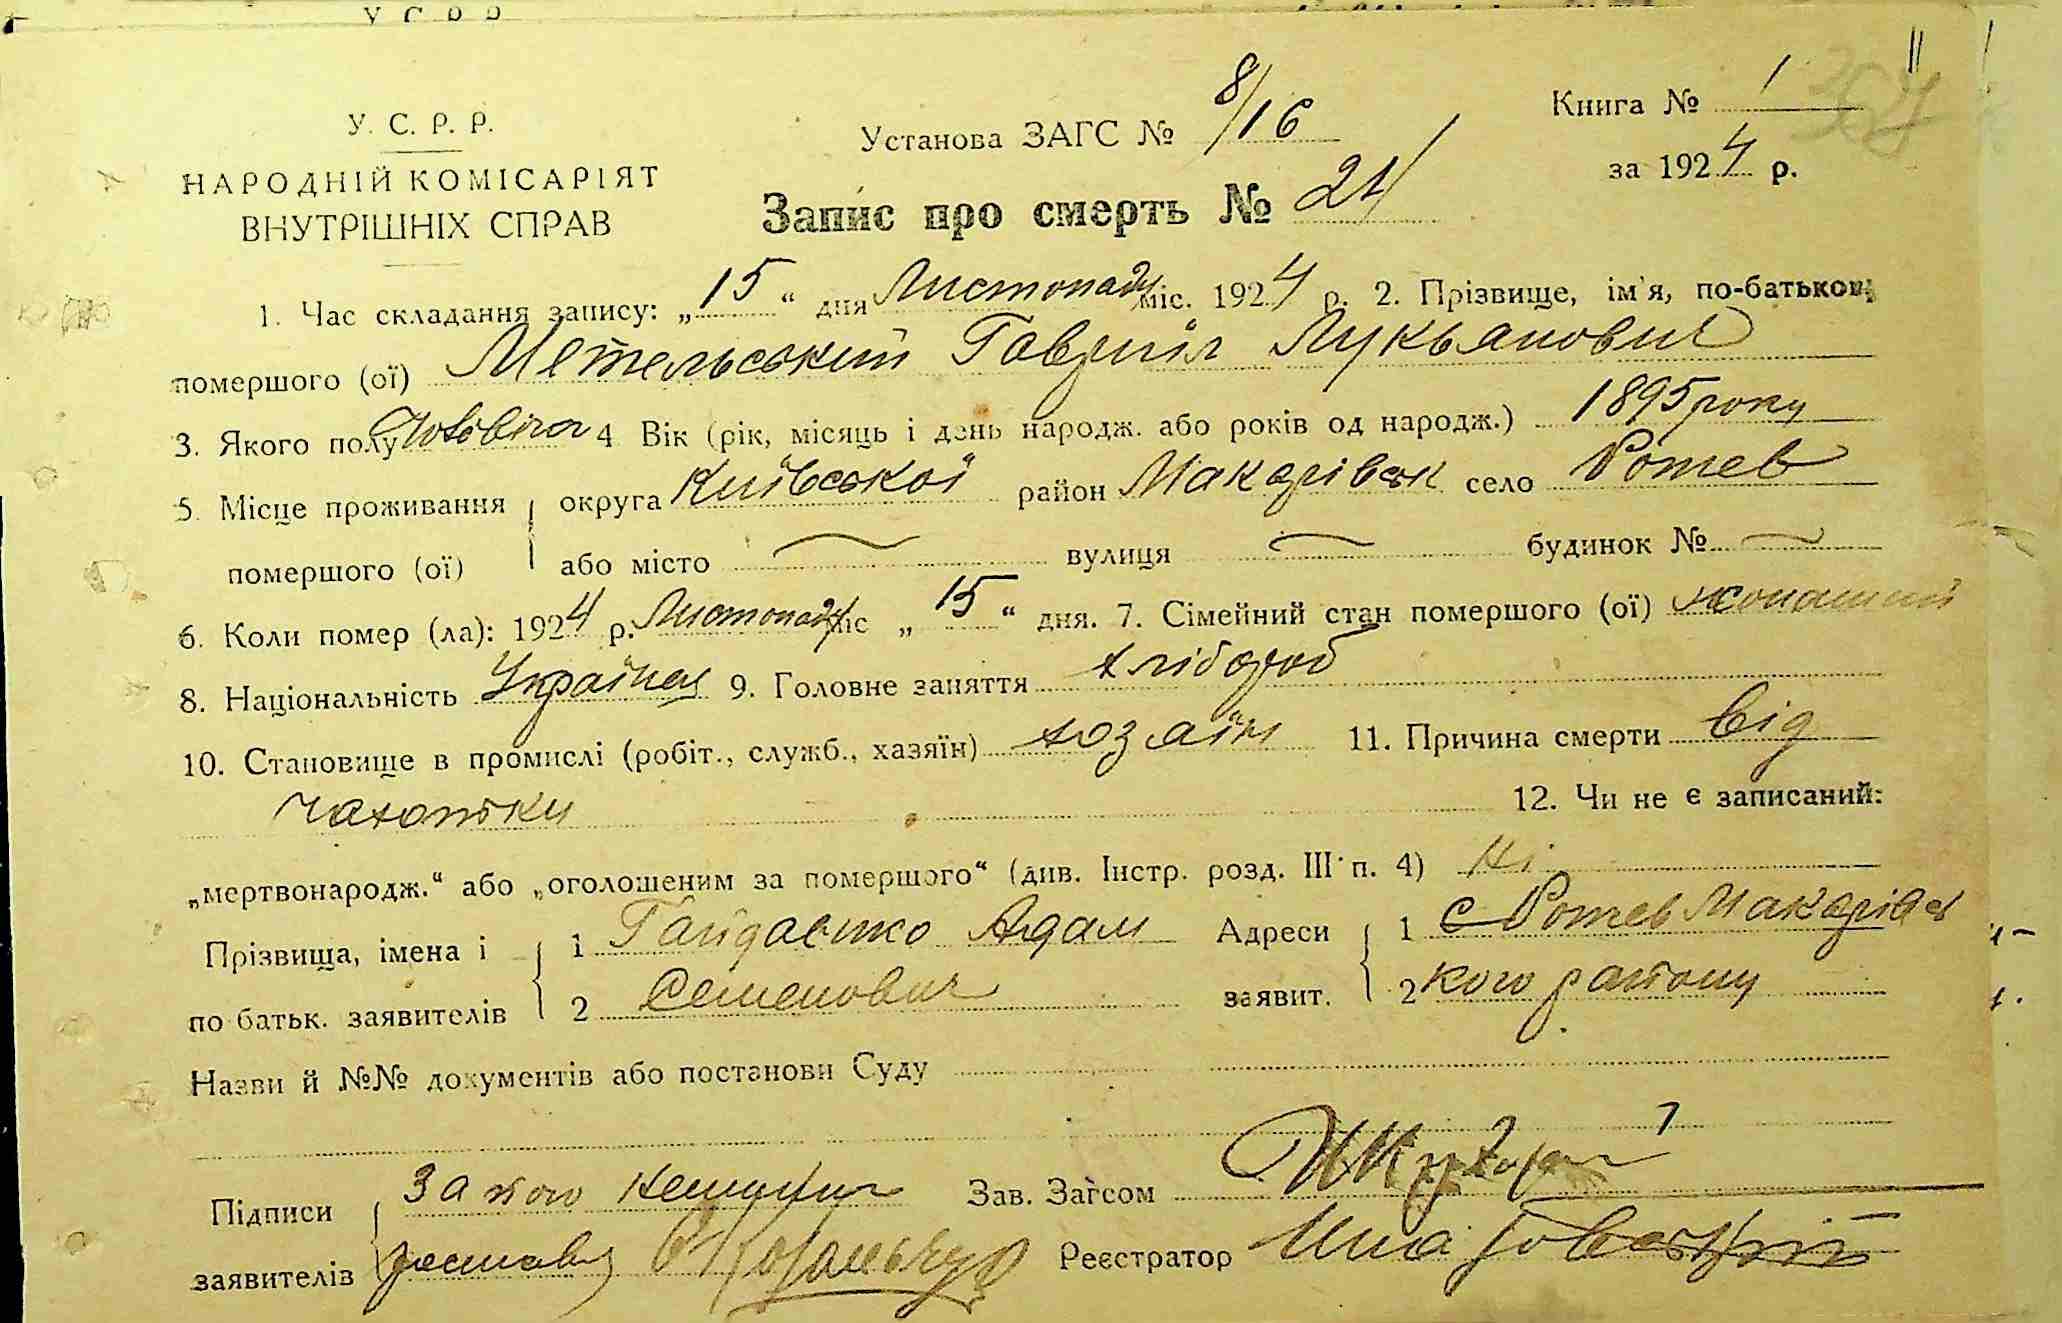 У. С. Р. Р.
НАРОДНІЙ КОМІСАРІЯТ
ВНУТРІШНІХ СПРАВ
Установа ЗАГС № 8/16
Книга № 1
за 1924 р.
Запис про смерть № 21
1. Час складання запису: „15“ дня Листопаду міс. 1924 р. 2. Прізвище, ім'я, по-батькови
помершого (ої) Метельський Гавриїл Лукьянович
3. Якого полу Чоловічого 4 Вік (рік, місяць і день народж. або років од народж.) 1895 року
5. Місце проживання округа Київської район Макарівськ село Ротев
помершого (ої) або місто вулиця будинок №
6. Коли помер (ла): 1924 р. Листопаду міс „15“ дня. 7. Сімейний стан помершого (ої)
8. Національність Українец 9. Головне заняття хлібороб
10. Становище в промислі (робіт., служб., хазяїн) хозаїн 11. Причина смерти від
чахотки 12. Чи не є записаний:
„мертвонародж.“ або „оголошеним за помершого“ (див. Інстр. розд. III п. 4) Ні
Прізвища, імена і 1 Адам Адреси 1 с Ротев Макарівсь
по батьк. заявителів 2 Семенович заявит. 2 кого району
Назви й №№ документів або постанови Суду
Підписи Зав. Загсом
заявителів Реєстратор